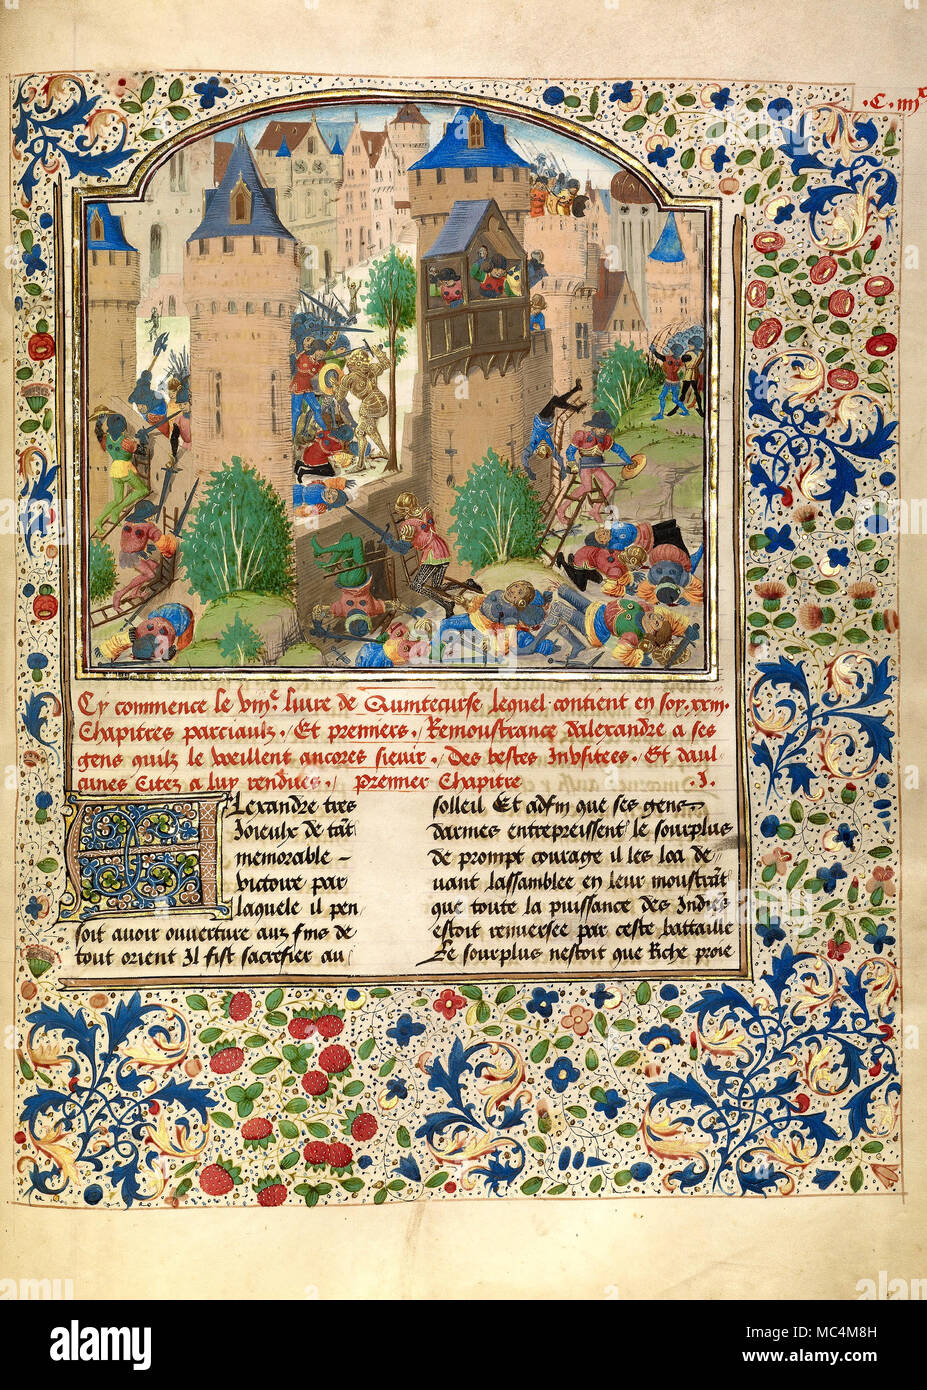 .C. iiijx
Cy commence le viije. liure de Quintecurse lequel contient en soy. xxiii.
Chapitres parciaulx. Et premiers. Remoustrance dalexandre a ses
gens quilz le vueillent ancores sieuir. Des bestes Inusitees. Et daul-
cunes Citez a luy rendues. Premier Chapitre .J.
ALexandre tres
Joieulx de tāt
memorable
victoire par
laquele il pen
soit auoir ouuerture aux fins de
tout orient Il fist sacrefier au
solleil Et adfin que ses gens
darmes entrepreissent le sourplus
de prompt courage il les loa de-
uant lassamblee en leur moustrāt
que toute la puissance des Indes
estoit renuersee par ceste battaille
Le sourplus nestoit que Riche proie
alamy
Image ID: MC4M8H
www.alamy.com